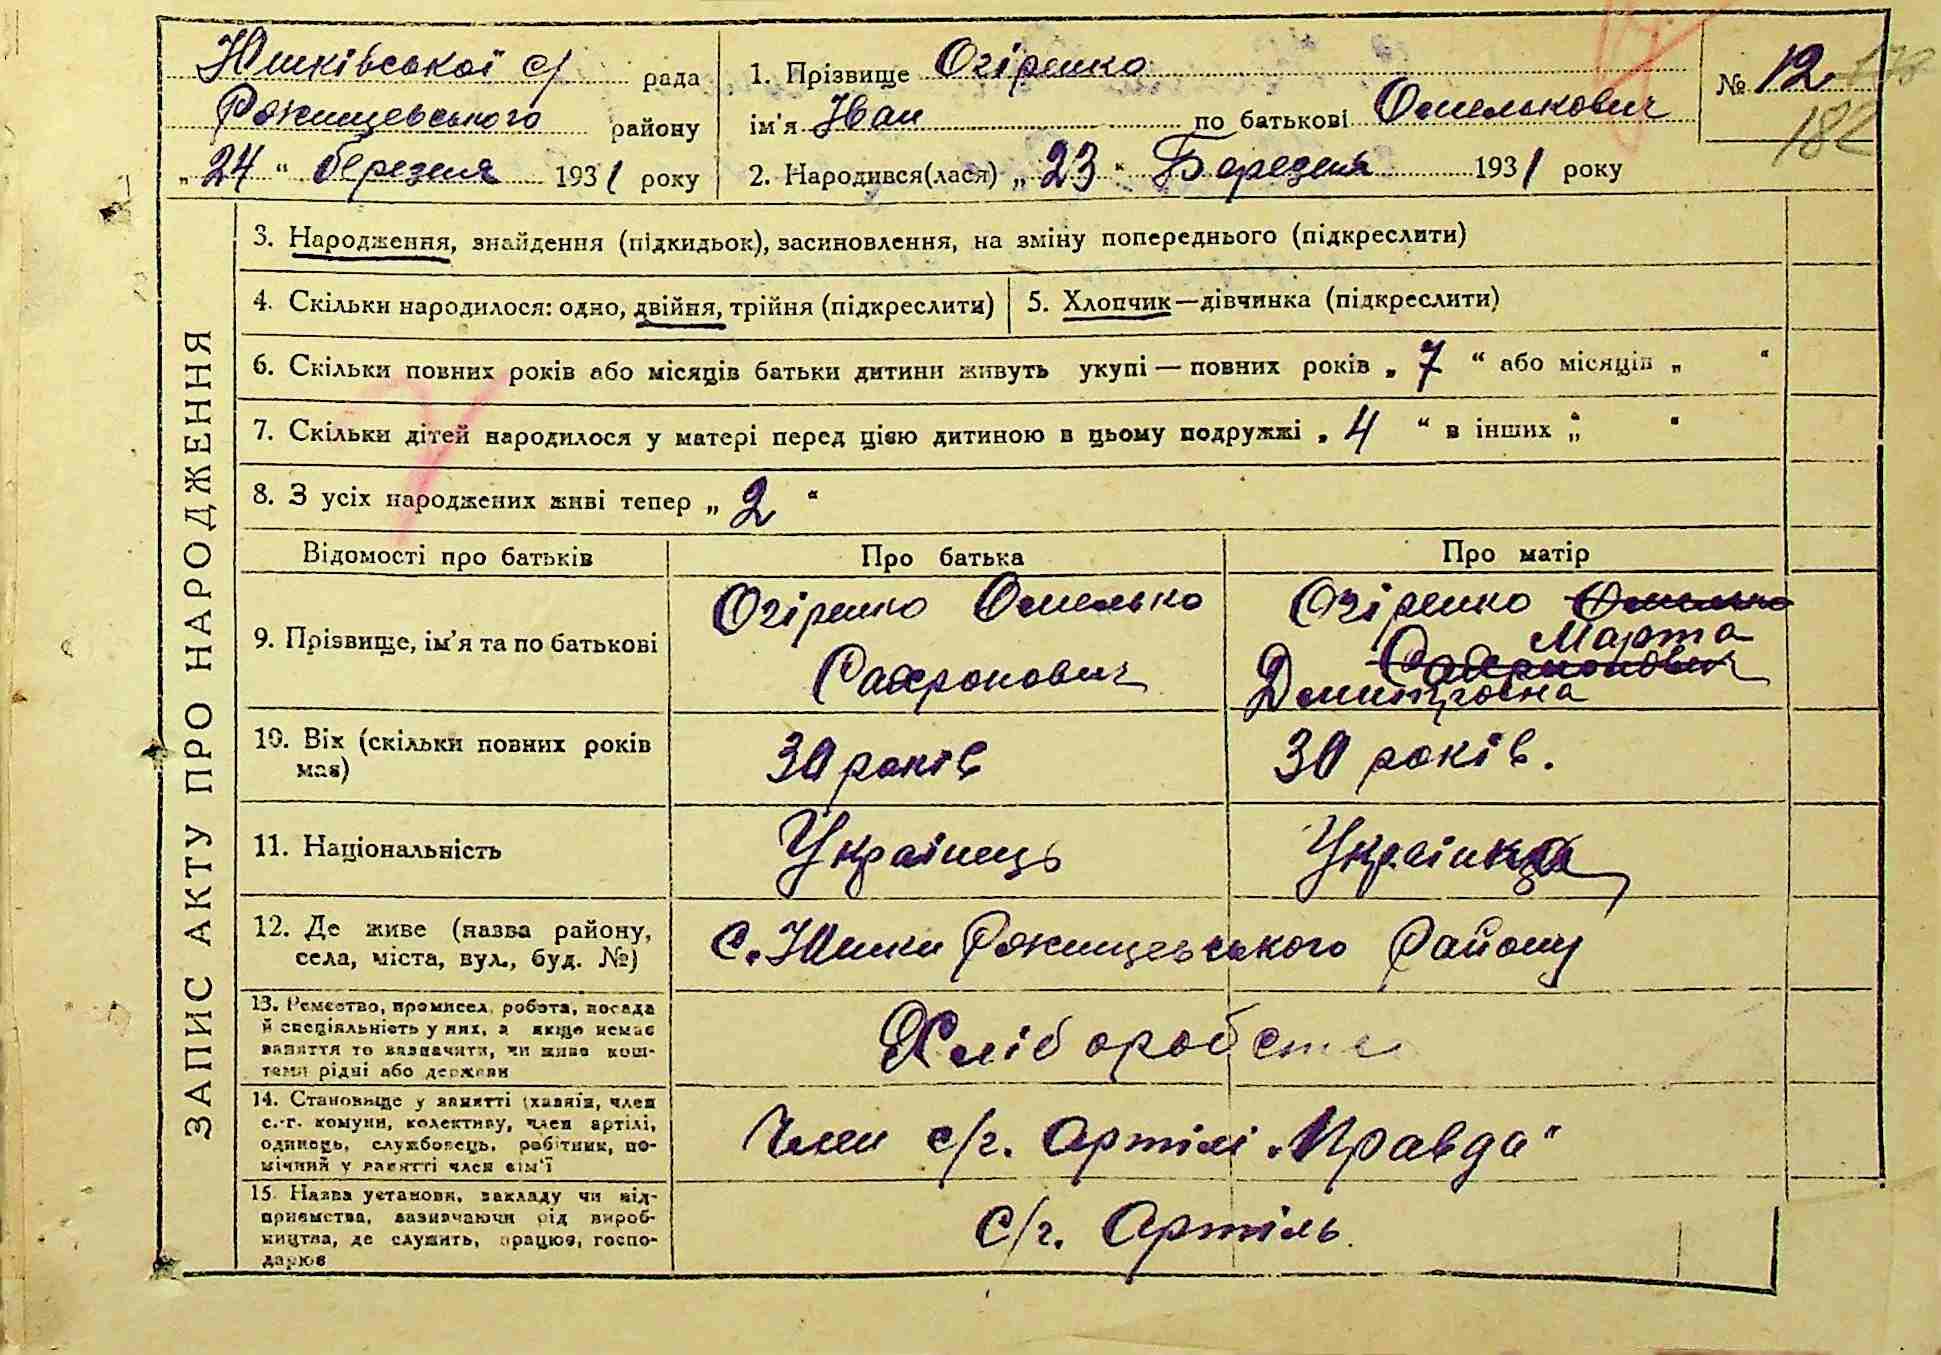 Юшківської с/ рада
Ржищевського району
„24“ березеня 1931 року
1. Прізвище Огіренко
ім'я Іван по батькові Омелькович
2. Народився(лася) „23“ Березеня 1931 року
№ 12
182
ЗАПИС АКТУ ПРО НАРОДЖЕННЯ
3. Народження, знайдення (підкидьок), засиновлення, на зміну попереднього (підкреслити)
4. Скільки народилося: одно, двійня, трійня (підкреслити)
5. Хлопчик—дівчинка (підкреслити)
6. Скільки повних років або місяців батьки дитини живуть укупі — повних років „7“ або місяців „ “
7. Скільки дітей народилося у матері перед цією дитиною в цьому подружжі „4“ в інших „ “
8. З усіх народжених живі тепер „2“
Відомості про батьків
Про батька
Про матір
9. Прізвище, ім'я та по батькові
Огіренко Омелько
Сафронович
Огіренко Омелько
Марта
Сафронович
Демитровна
10. Вік (скільки повних років
має)
30 років
30 років.
11. Національність
Українець
Українка
12. Де живе (назва району,
села, міста, вул., буд. №)
С. Юшки Ржищевського Району
13. Ремество, промисел, робота, посада
й спеціяльність у них, а якщо немає
заняття то зазначити, чи живе кош-
тами рідні або держави
Хліборобств
14. Становище у занятті (хазяїн, член
с.-г. комуни, колективу, член артілі,
одинець, службовець, робітник, по-
мічний у занятті член сім'ї
Член с/г. Артілі „Правда“
15. Назва установи, закладу чи під-
приємства, зазначаючи рід вироб-
ництва, де служить, працює, госпо-
дарює
С/г. Артіль.